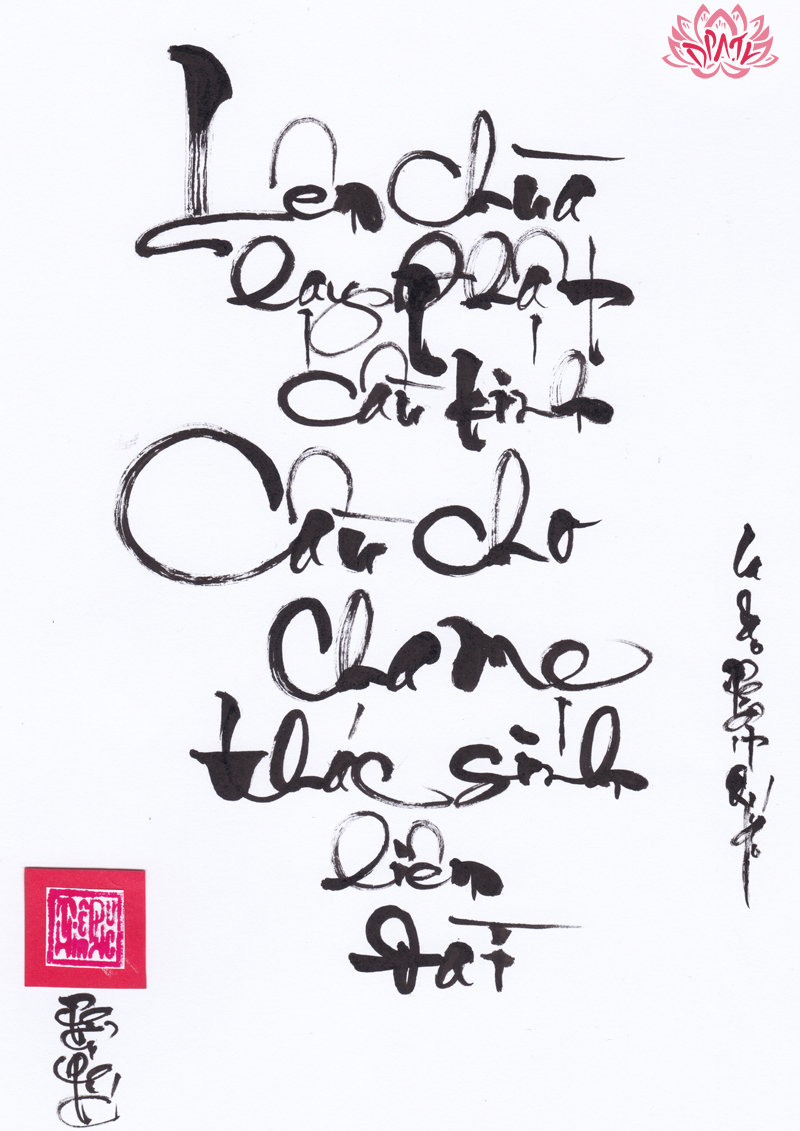 DPATK
Lên chùa
lạy Phật
cầu kinh
Cầu cho
cha mẹ
thác sinh
liên
đài